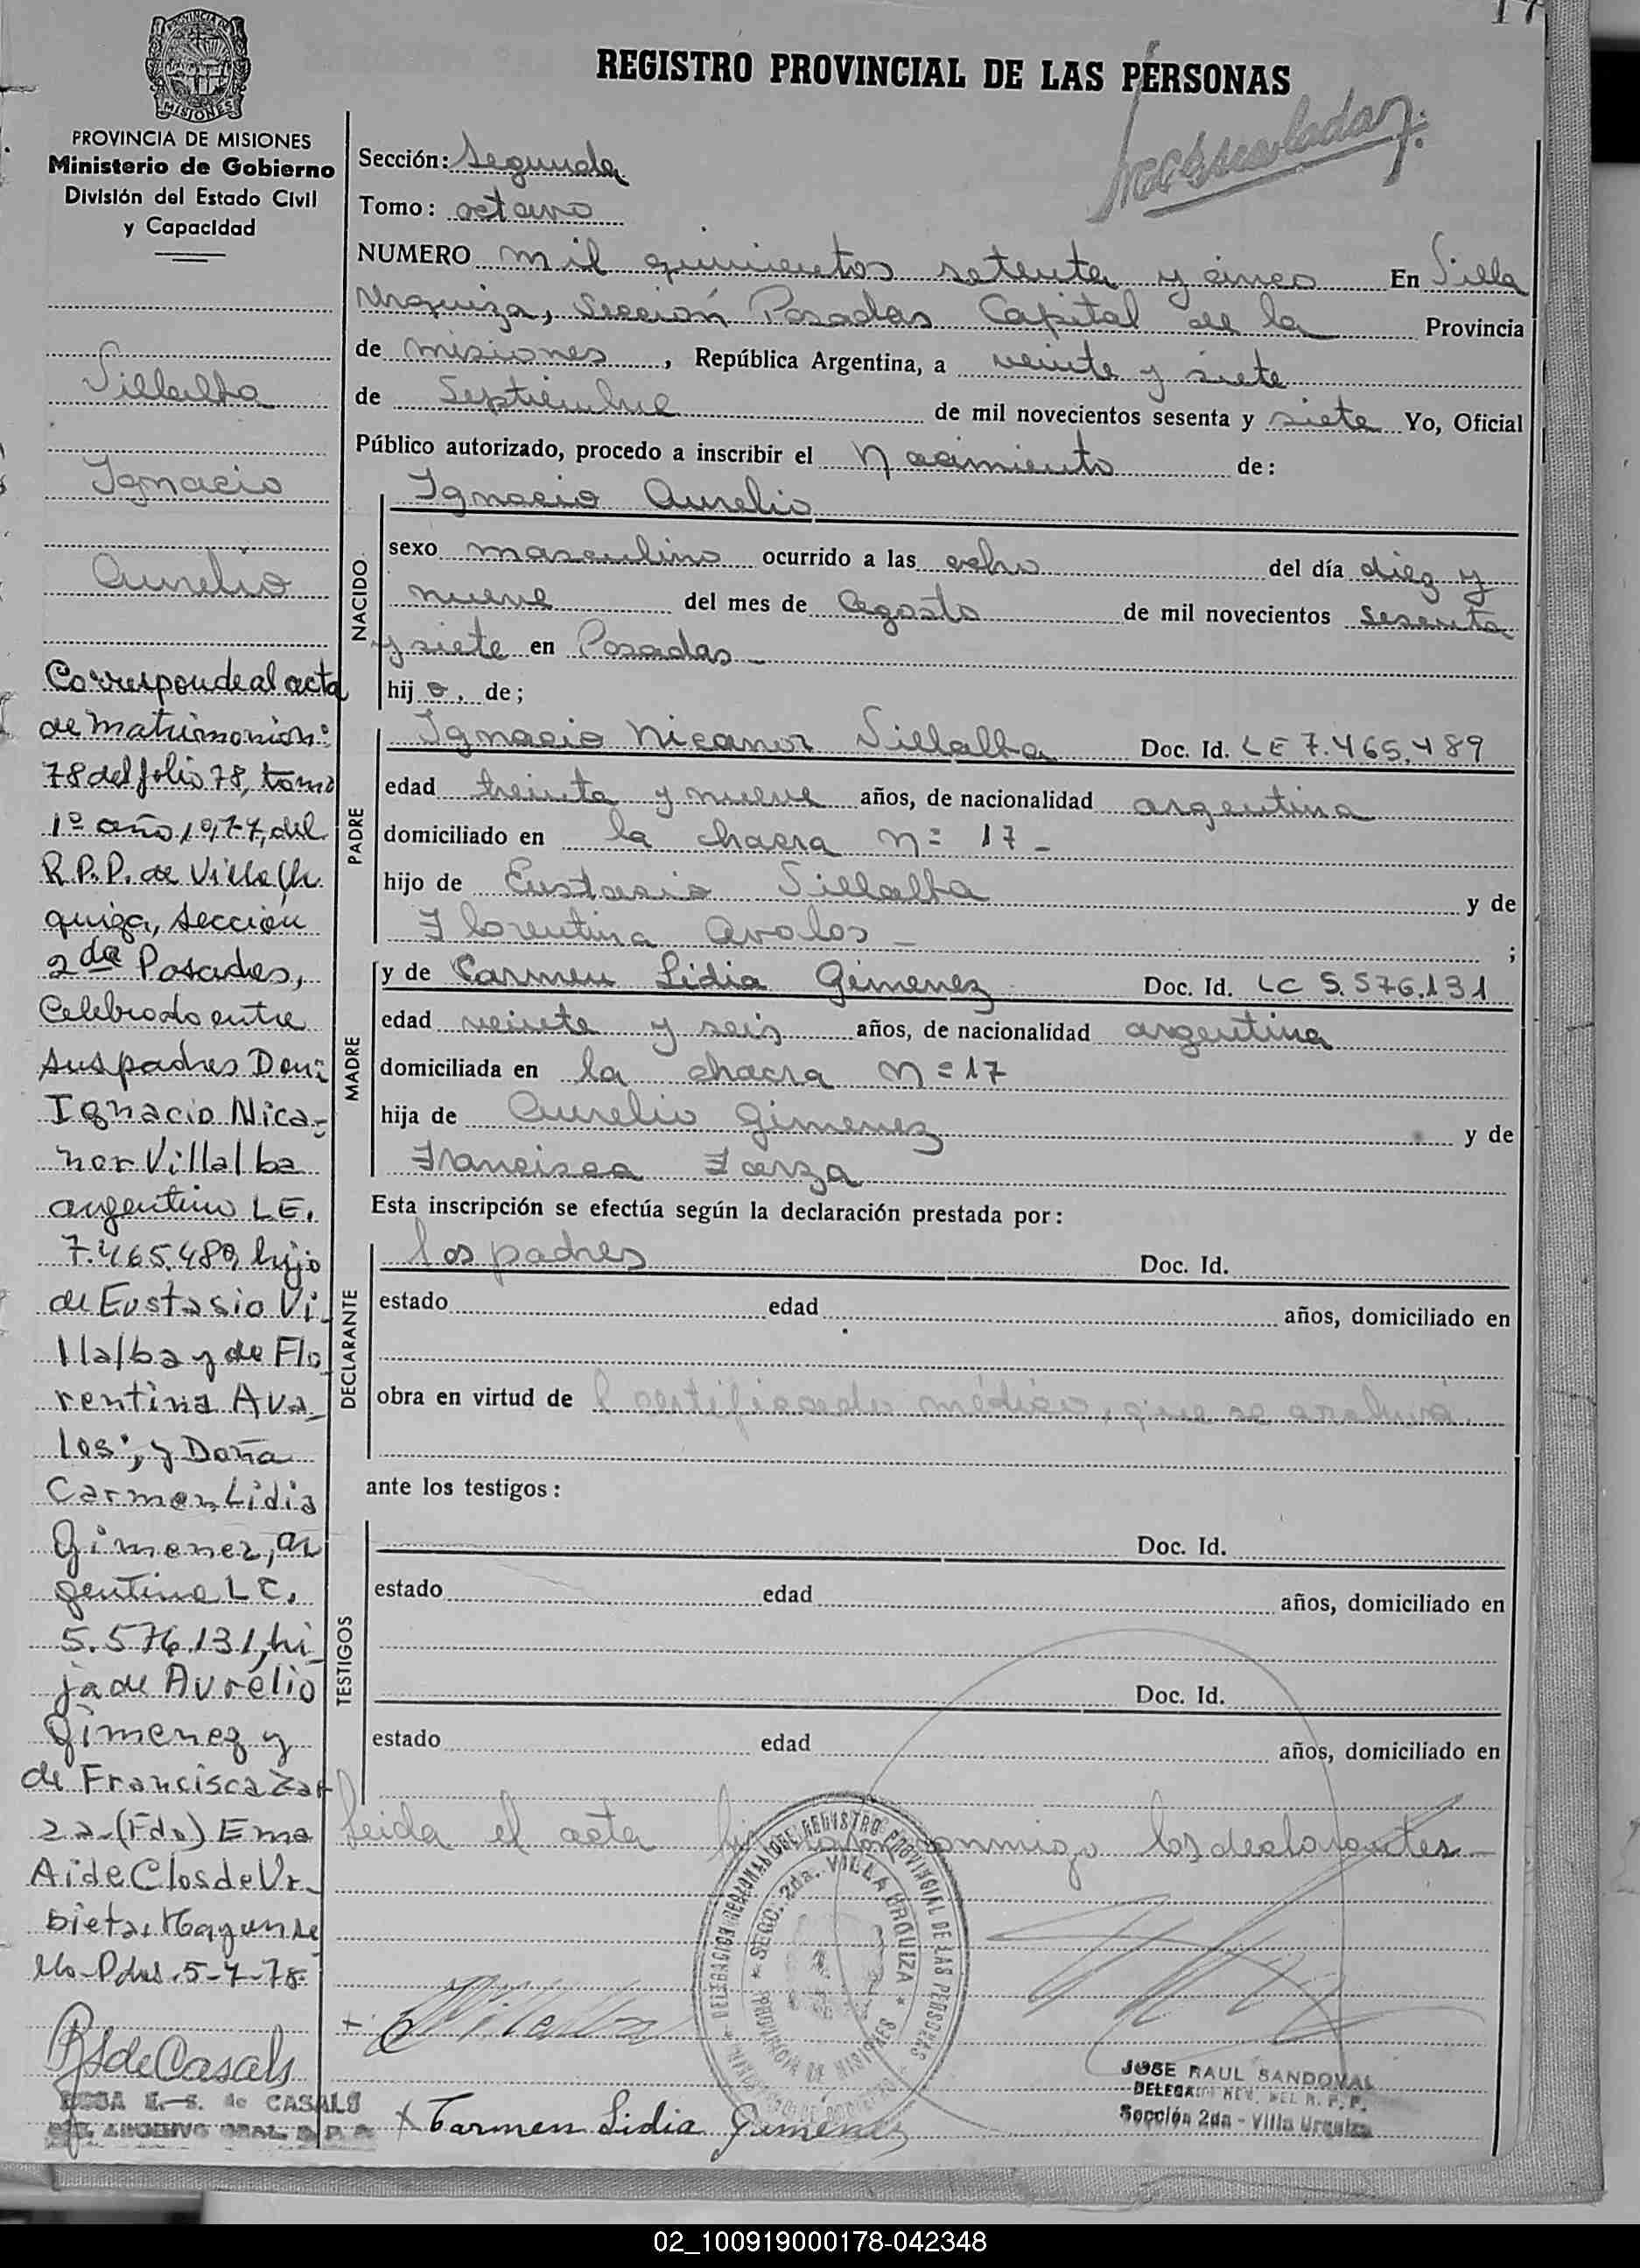 17
REGISTRO PROVINCIAL DE LAS PERSONAS
PROVINCIA DE MISIONES
Ministerio de Gobierno
División del Estado Civil
y Capacidad
Villalba
Ignacio
Aurelio
Corresponde al acta
de matrimonio n:
78 del folio 78, tomo
1º año 1977, del
R.P.P. de Villa Ur
quiza, Sección
2da Posadas,
Celebrado entre
sus padres Don:
Ignacio Nica-
nor Villalba
argentino LE.
7.465.489, hijo
de Eustasio Vi-
llalba y de Flo
rentina Ava
los; y Doña
Carmen Lidia
Gimenez, ar
gentina LC.
5.576.131, hi
ja de Aurelio
Gimenez y
de Francisca Zar
za-(Fdo) Ema
Aide Clos de Ur-
bieta,
Pdas. 5-7-78
RSdeCasals
ROSA E. S. de CASALS
ARCHIVO GRAL. R. P. P.
Sección: Segunda
Tomo: octavo
NUMERO mil quinientos setenta y cinco En Villa
Urquiza, Sección Posadas Capital de la Provincia
de misiones, República Argentina, a veinte y siete
de Septiembre de mil novecientos sesenta y siete Yo, Oficial
Público autorizado, procedo a inscribir el Nacimiento de:
NACIDO
Ignacio Aurelio
sexo masculino ocurrido a las ocho del día diez y
nueve del mes de Agosto de mil novecientos sesenta
y siete en Posadas -
hij o. de;
PADRE
Ignacio Nicanor Villalba Doc. Id. LE 7.465.489
edad treinta y nueve años, de nacionalidad argentina
domiciliado en la chacra n= 17 -
hijo de Eustasio Villalba y de
Florentina Avalos - ;
MADRE
y de Carmen Lidia Gimenez Doc. Id. LC 5.576.131
edad veinte y seis años, de nacionalidad argentina
domiciliada en la chacra n= 17
hija de Aurelio Gimenez y de
Francisca Zarza
Esta inscripción se efectúa según la declaración prestada por:
DECLARANTE
los padres Doc. Id.
estado edad años, domiciliado en
obra en virtud de l certificado médico, que se archiva.
ante los testigos:
TESTIGOS
Doc. Id.
estado edad años, domiciliado en
Doc. Id.
estado edad años, domiciliado en
Leida el acta conmigo los declarantes -
DELEGACION REGISTRO PROVINCIAL DE LAS PERSONAS
SECC. 2da. VILLA URQUIZA
PROVINCIA DE MISIONES
Villalba
Carmen Lidia Gimenez
JOSE RAUL SANDOVAL
DELEGADO DEL R. P. P.
Sección 2da - Villa Urquiza
02_100919000178-042348